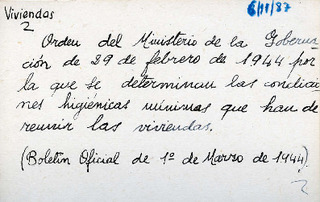 Viviendas 6/11/87
2
Orden del Ministerio de la Goberna-
ción de 29 de febrero de 1944 por
la que se determinan las condicio-
nes higiénicas mínimas que han de
reunir las viviendas.
(Boletín Oficial de 1º de Marzo de 1944)